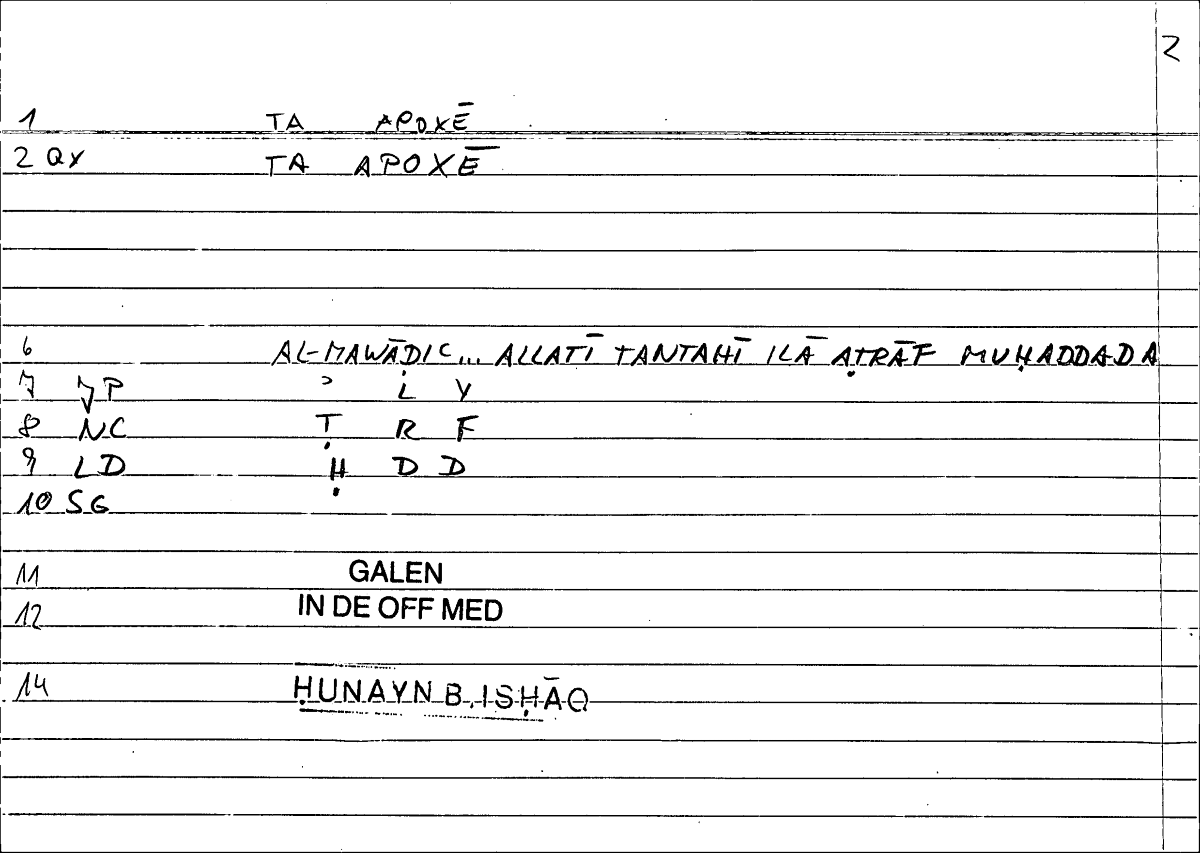 2
1 TA APOXĒ
2 QX TA APOXĒ
6 AL-MAWĀḌIC... ALLATĪ TANTAHĪ ILĀ AṬRĀF MUḤADDADA
7 JP ʾ L Y
8 NC Ṭ R F
9 LD Ḥ D D
10 SG
11 GALEN
12 IN DE OFF MED
14 ḤUNAYN B. ISḤĀQ